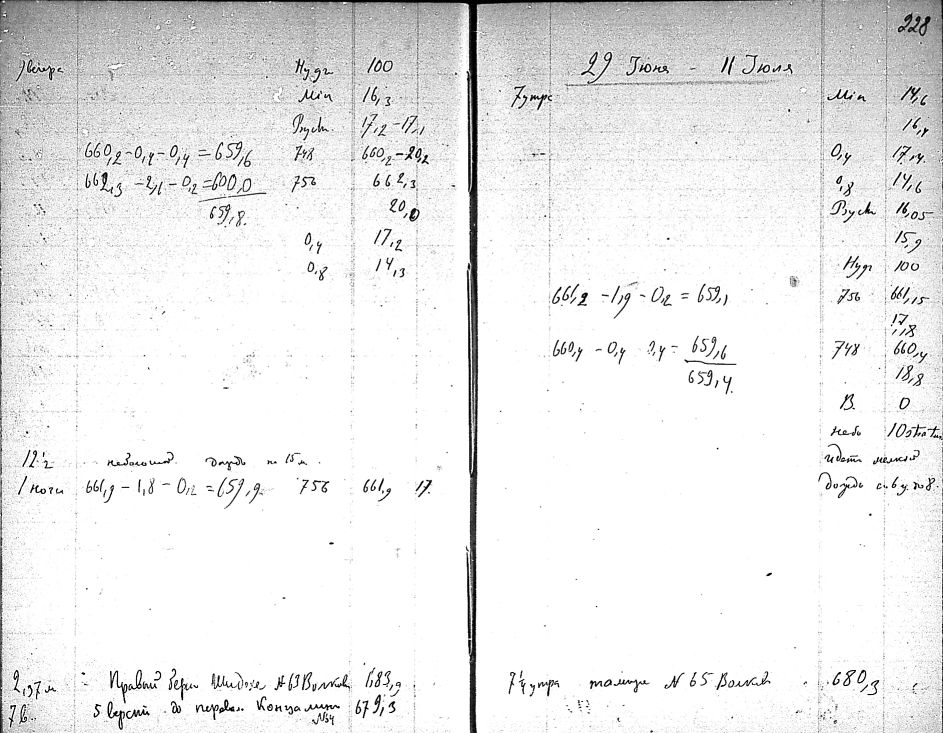 вечера Нудг 100
Min 16,3
Psych. 17,2 - 17,1
660,2 - 0,4 - 0,4 = 659,6 748 660,2 - 20,2
662,3 - 2,1 - 0,2 = 600,0 756 662,3
659,8. 20,0
0,4 17,2
0,8 14,3
12 1/2 небольшой дождь на 15 м.
1 ночи 661,9 - 1,8 - 0,2 = 659,9 756 661,9 17.
2,97 м Правый берег № 63 Волков 683,9
7 в. 5 верст до перевал 679,3
№ 34
228
29 Июня - 11 Июля
7 утра Min 14,6
16,4
0,4 17,4
0,8 14,6
Psych 16,05
15,9
Нудг 100
661,2 - 1,9 - 0,2 = 659,1 756 661,15
17,18
660,4 - 0,4 0,4 = 659,6 748 660,4
659,4. 18,8
В. 0
небо 10 stratus
идет мелкий
дождь с 6 у. до 8.
7 1/4 утра № 65 Волков 680,3